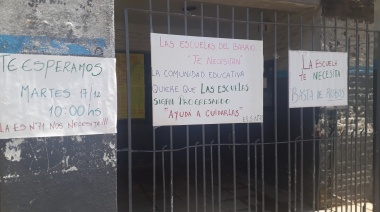 TE ESPERAMOS
MARTES 17/12
10:00 hs
LA ES N°71 NOS NECESITA!!!
LAS ESCUELAS DEL BARRIO
"TE NECESITAN"
LA COMUNIDAD EDUCATIVA
QUIERE QUE LAS ESCUELAS
SIGAN PROGRESANDO
"AYUDA A CUIDARLES"
LA ESCUELA
TE NECESITA
BASTA DE ROBOS